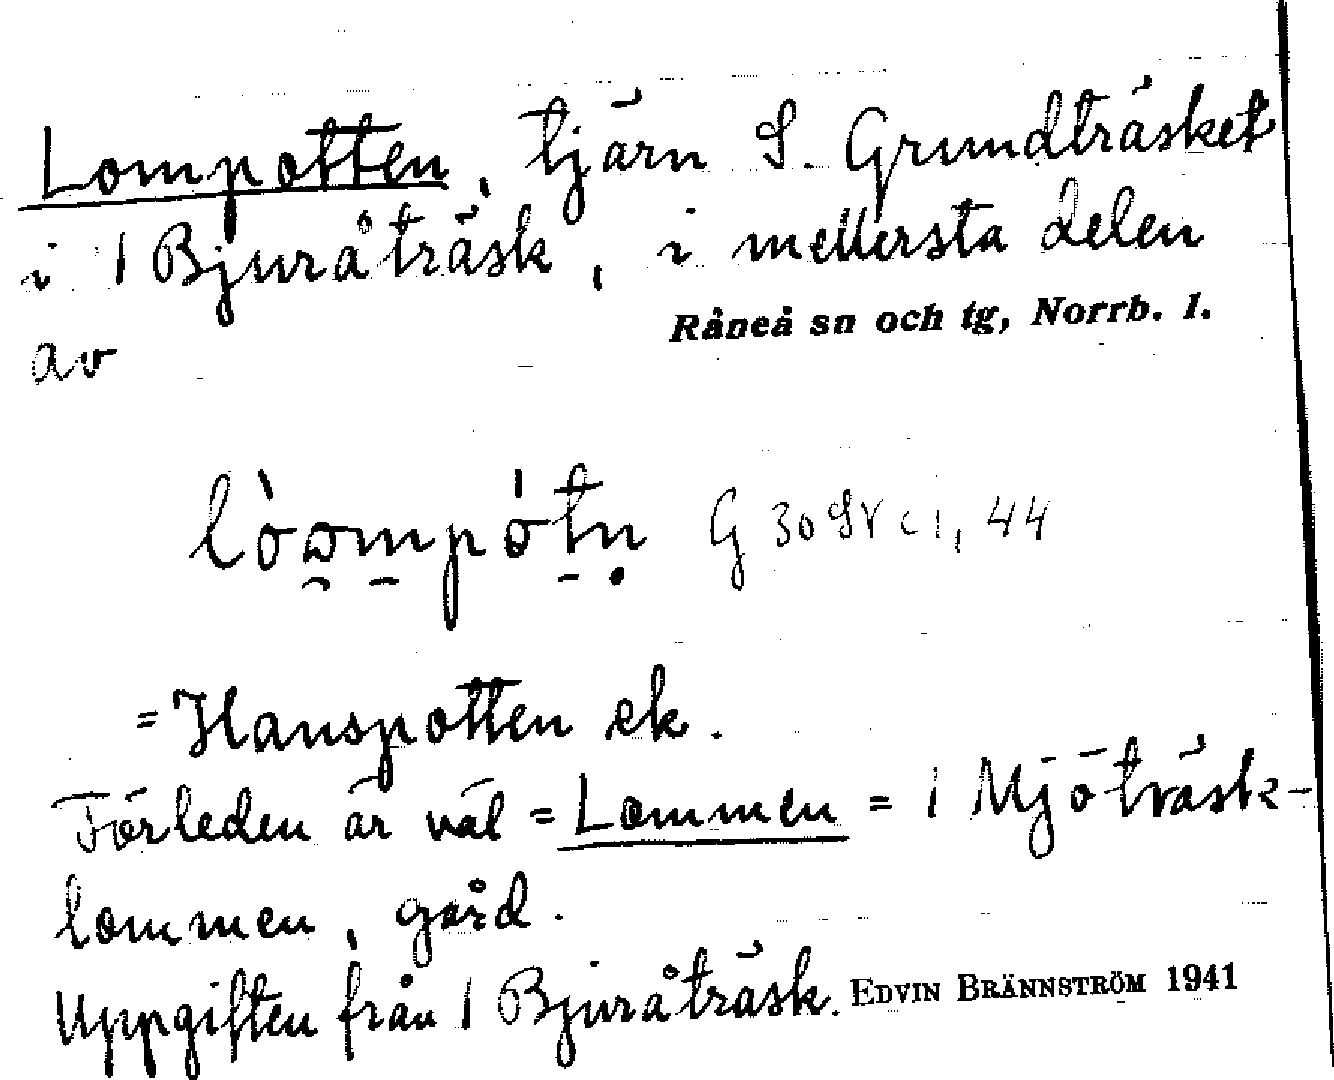 Lompotten, tjärn S. Grundträsket
i 1 Bjuråträsk, i mellersta delen
av
Råneå sn och tg, Norrb. l.
G 30 SV c 1, 44
= Hanspotten ek.
Förleden är väl = Lommen = 1 Mjöträsk-
lommen, gård.
Uppgiften från 1 Bjuråträsk. EDVIN BRÄNNSTRÖM 1941